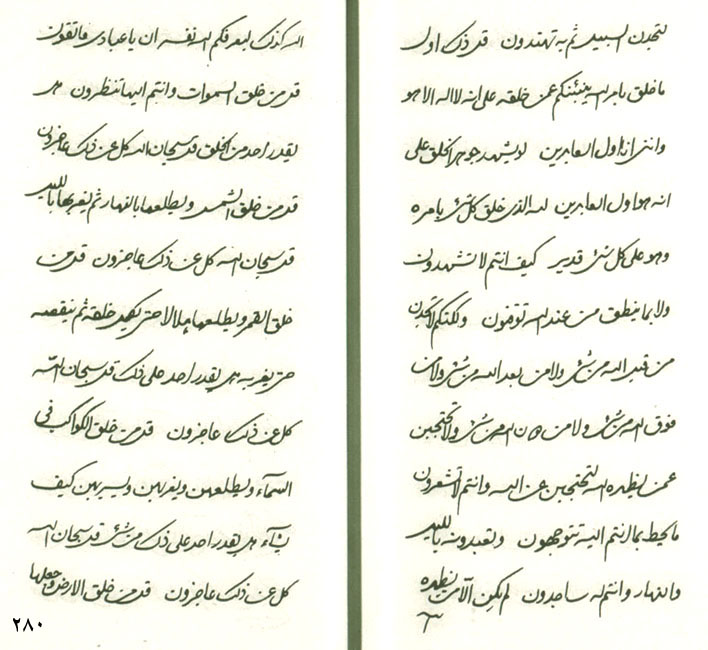 لتجدن السبيل ثم به تهتدون قل ذلك اول
ما خلق بامر الله ينبئنكم عن خلقه على انه لا اله الا هو
وانني انا اول العابدين لو يشهد جوهر الخلق على
انه هو اول العابدين لله الذي خلق كل شئ بامره
وهو على كل شئ قدير كيف انتم لا تشهدون
ولا بما ينطق من عند الله توقنون ولكنكم لا تجدن
من قبل الله من شئ ولا من بعد الله من شئ ولا من
فوق الله من شئ ولا من دون الله من شئ ولا تحتجبن
عمن يظهره الله لتحتجبن عن الله وانتم لا تشعرون
ما يحيط بما انتم اليه تتوجهون وتعبدونه بالليل
والنهار وانتم له ساجدون لم يكن الا من يظهره
الله كذلك ليعرفكم الله نفسه ان يا عبادي فاتقون
قل من خلق السموات وانتم اليها تنظرون هل
يقدر احد من الخلق قل سبحان الله كل عن ذلك عاجزون
قل من خلق الشمس ويطلعها بالنهار ثم يغربها بالليل
قل سبحان الله كل عن ذلك عاجزون قل من
خلق القمر ويطلعها هلالا حتى يكمل خلقه ثم ينقصه
حتى يغربه هل يقدر احد على ذلك قل سبحان الله
كل عن ذلك عاجزون قل من خلق الكواكب في
السماء ويطلعهن ويغربهن ويسيرهن كيف
يشآء هل يقدر احد على ذلك من شئ قل سبحان الله
كل عن ذلك عاجزون قل من خلق الارض وجعلها
٢٨٠